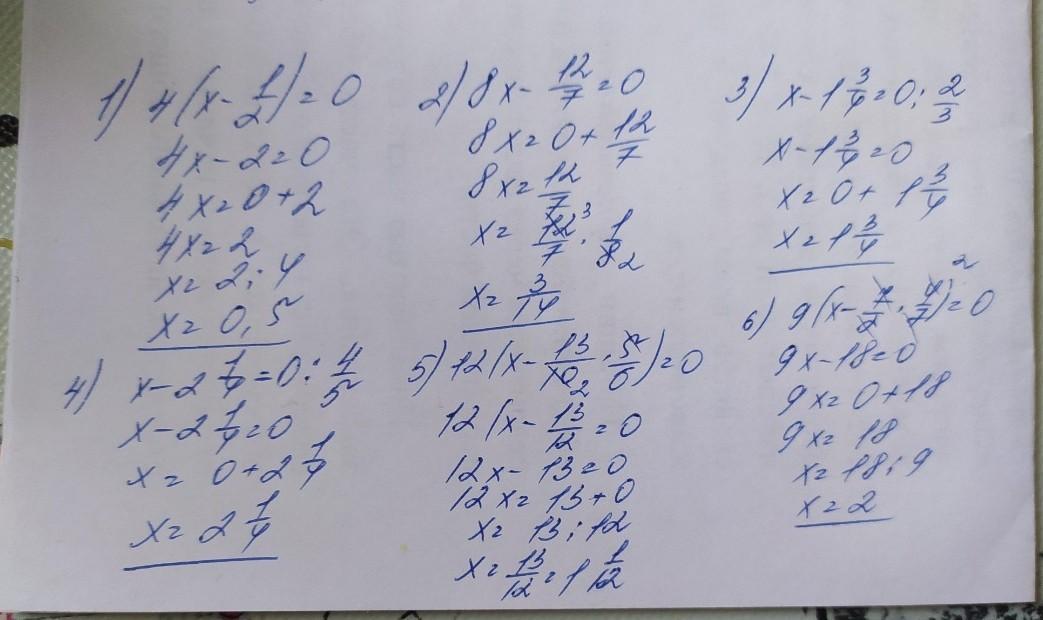 1) 4(x - 1/2) = 0
4x - 2 = 0
4x = 0 + 2
4x = 2
x = 2 : 4
x = 0,5
2) 8x - 12/7 = 0
8x = 0 + 12/7
8x = 12/7
x = 12/7 3 · 1/8 2
x = 3/14
3) x - 1 3/4 = 0 : 2/3
x - 1 3/4 = 0
x = 0 + 1 3/4
x = 1 3/4
4) x - 2 1/4 = 0 : 4/5
x - 2 1/4 = 0
x = 0 + 2 1/4
x = 2 1/4
5) 12(x - 13/10 2 · 5/6) = 0
12(x - 13/12 = 0
12x - 13 = 0
12x = 13 + 0
x = 13 : 12
x = 13/12 = 1 1/12
6) 9(x - 7/2 · 4/7 2) = 0
9x - 18 = 0
9x = 0 + 18
9x = 18
x = 18 : 9
x = 2